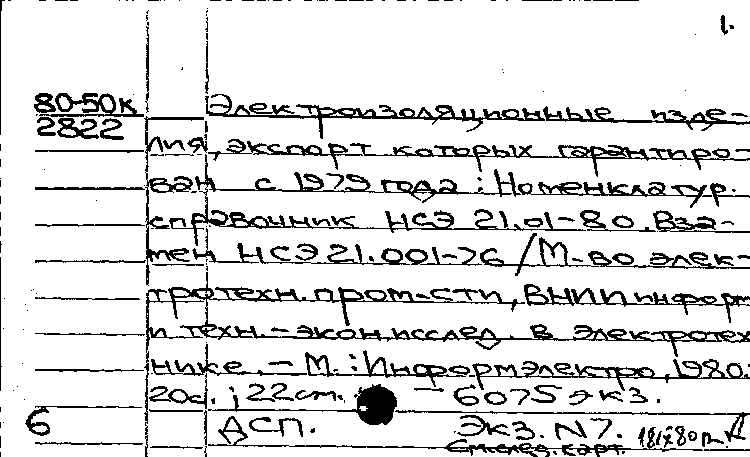 1.
80-50к
2822
Электроизоляционные изде-
лия, экспорт которых гарантиро-
ван с 1979 года : Номенклатур.
справочник НСЭ 21.01-80. Вза-
мен НСЭ 21.001-76 / М-во элек-
тротехн. пром-сти, ВНИИ информ
и техн.-экон. исслед. в электротех
нике. - М. : Информэлектро, 1980.
20с. ; 22 см. - 6075 экз.
6 ДСП. Экз. N7.
См. след. карт.